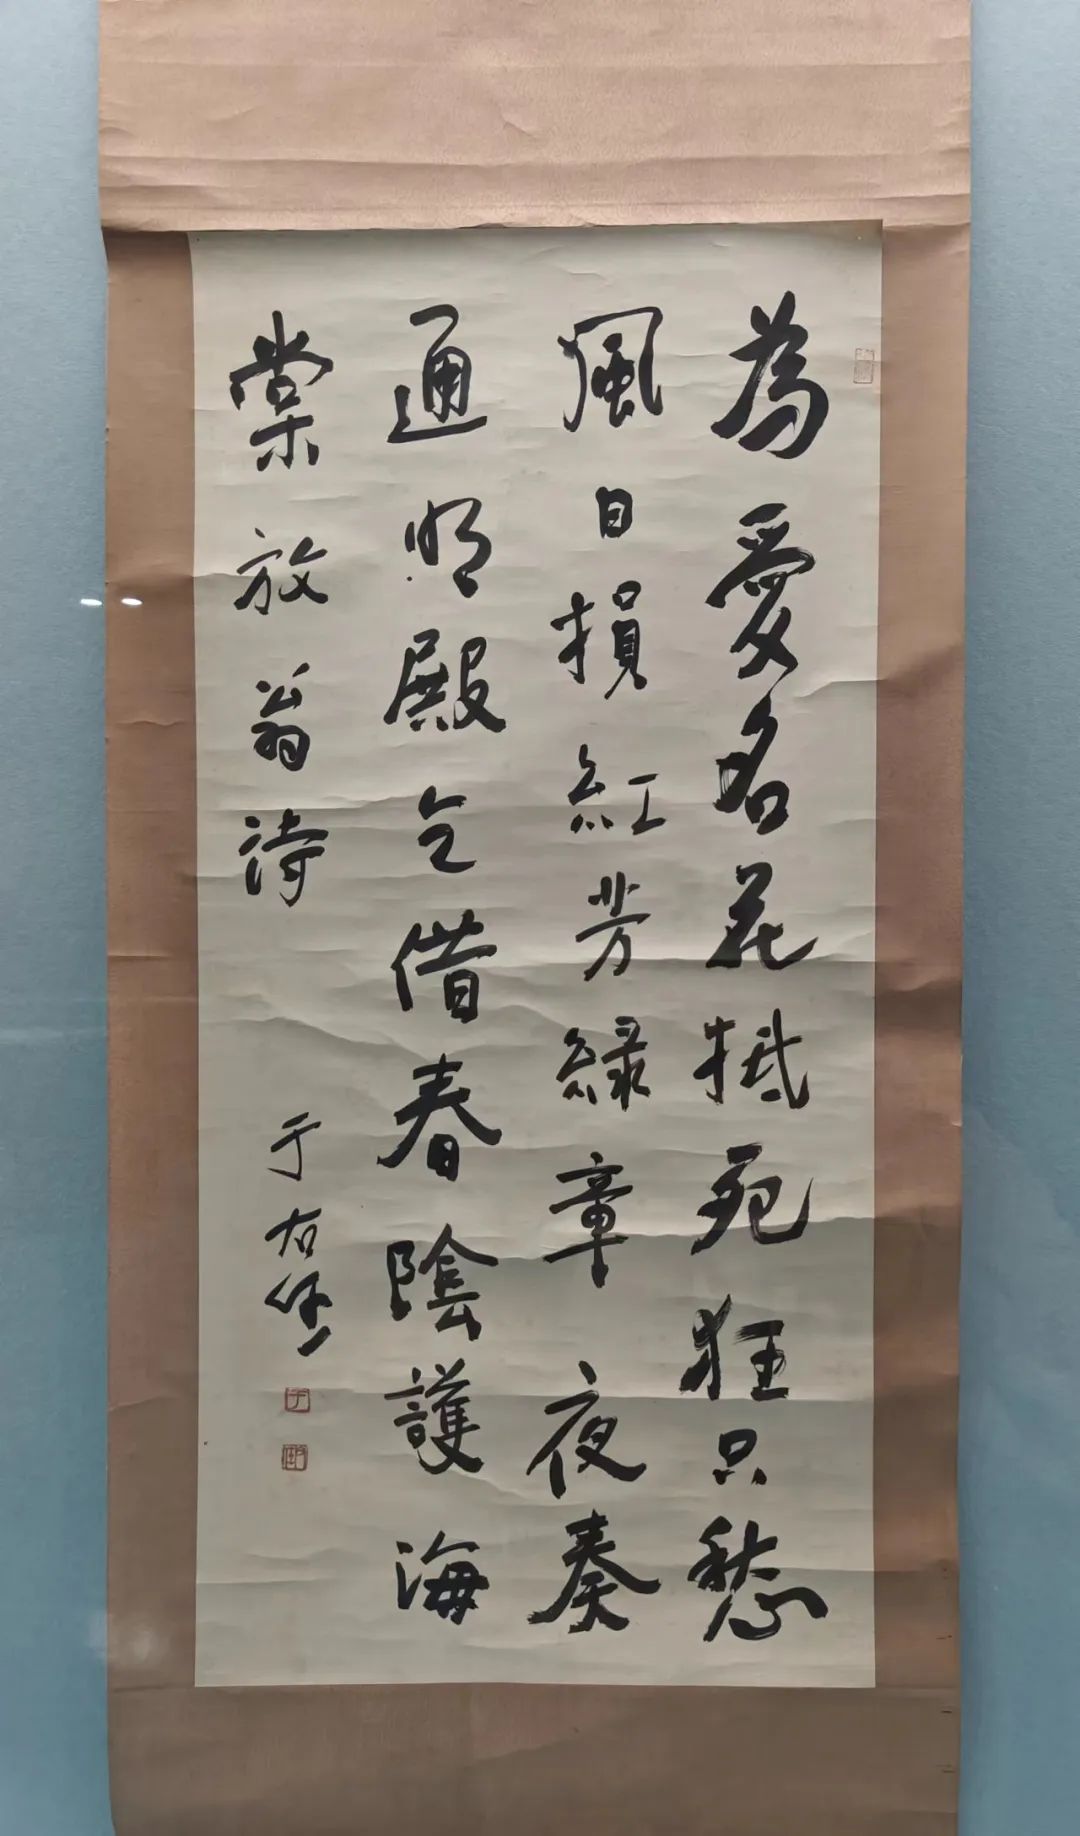 為愛名花抵死狂只愁
風日損紅芳綠章夜奏
通明殿乞借春陰護海
棠放翁詩
于右任